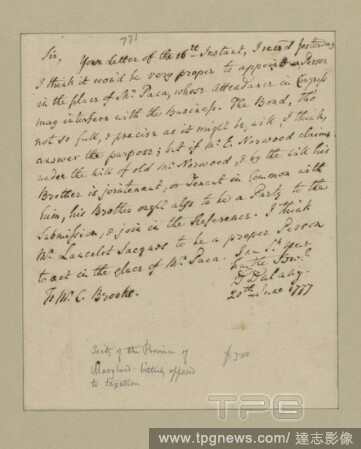 781
Sir, Your Letter of the 16th Instant, I recevd Yesterday
I think it wou'd be very proper to appoint a Person
in the place of Mr. Paca, whose attendance in Congress
may interfere with the Business. The Bond, tho'
not so full, & precise as it might be, will I think,
answer the purpose; but if Mr. E. Norwood claims
under the Will of old Mr. Norwood, & by the Will his
Brother is jointenant, or Tenant in Common with
him, his Brother ought also to be a Party to the
Submission, & join in the Reference. I think
Mr. Lancelot Jacques to be a proper Person
to act in the place of Mr. Paca. I am Sr. Your
humble Servt.
D Dulany.
To Mr. C. Brooke. 20th June 1777
Secty of the Province of
Maryland bitterly opposed
to taxation
TPG
www.tpgnews.com/達志影像